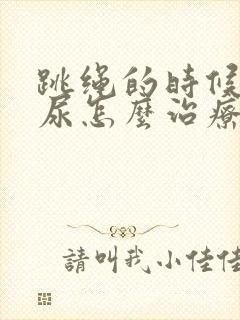 跳绳的時候
尿怎麼治療
請叫我小佳佳